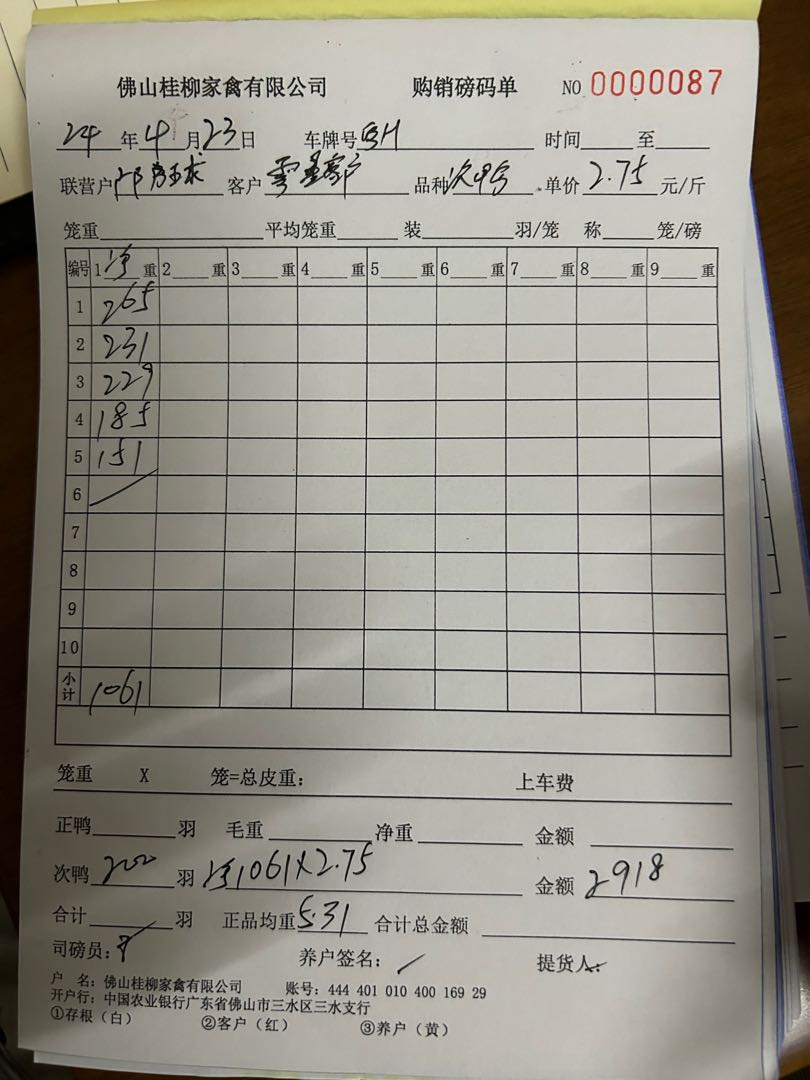 佛山桂柳家禽有限公司 购销磅码单 NO 0000087
24年4月23日 车牌号 时间 至
联营户 客户 零星客户 品种次鸭 单价2.75元/斤
笼重 平均笼重 装 羽/笼 称 笼/磅
编号 1净重 2 重 3 重 4 重 5 重 6 重 7 重 8 重 9 重
1 265
2 231
3 229
4 185
5 151
6
7
8
9
10
小计 1061
笼重 X 笼=总皮重: 上车费
正鸭 羽 毛重 净重 金额
次鸭200羽 净1061X2.75 金额2918
合计 羽 正品均重5.31 合计总金额
司磅员: 养户签名: 提货人:
户 名: 佛山桂柳家禽有限公司 账号: 444 401 010 400 169 29
开户行: 中国农业银行广东省佛山市三水区三水支行
①存根(白) ②客户(红) ③养户(黄)